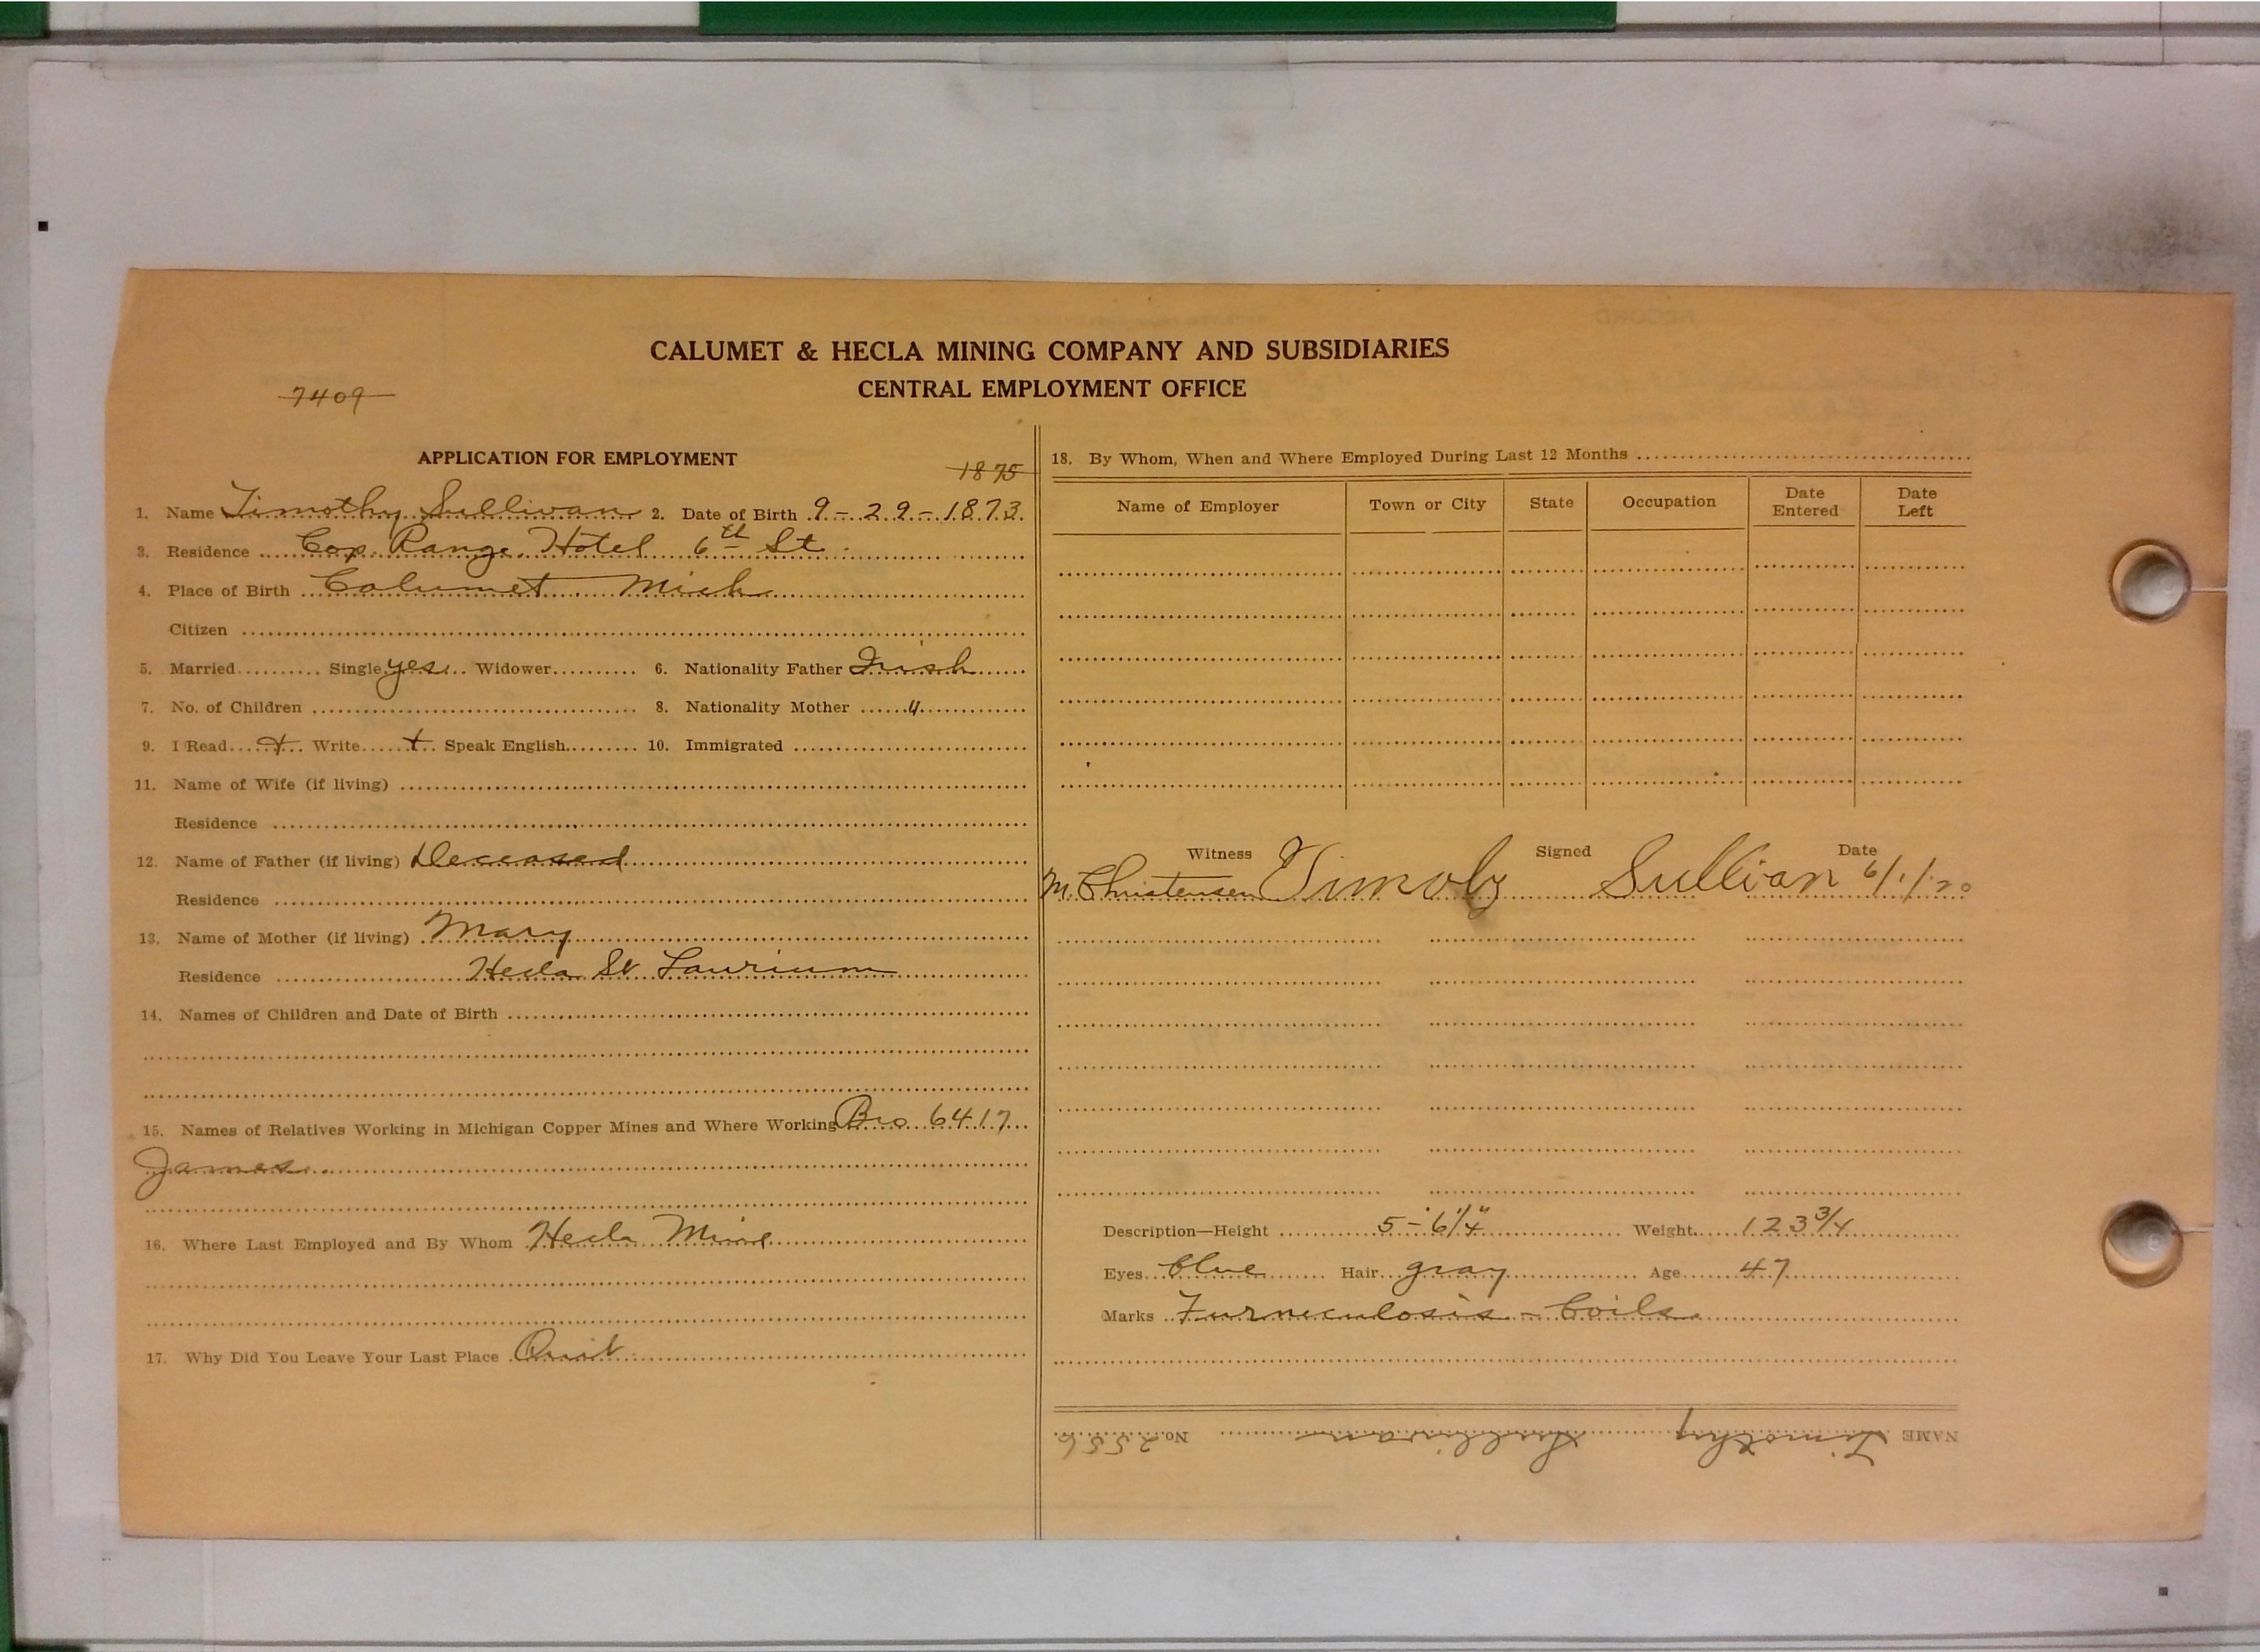 CALUMET & HECLA MINING COMPANY AND SUBSIDIARIES
CENTRAL EMPLOYMENT OFFICE
7409
APPLICATION FOR EMPLOYMENT
1875
1. Name Timothy Sullivan 2. Date of Birth 9-29-1873
3. Residence Cop Range Hotel 6th St
4. Place of Birth Calumet Mich
Citizen
5. Married Single yes Widower 6. Nationality Father Irish
7. No. of Children 8. Nationality Mother "
9. I Read + Write + Speak English 10. Immigrated
11. Name of Wife (if living)
Residence
12. Name of Father (if living) Deceased
Residence
13. Name of Mother (if living) Mary
Residence Hecla St Laurium
14. Names of Children and Date of Birth
15. Names of Relatives Working in Michigan Copper Mines and Where Working Bro 6417
James
16. Where Last Employed and By Whom Hecla Mine
17. Why Did You Leave Your Last Place Quit
18. By Whom, When and Where Employed During Last 12 Months
Name of Employer Town or City State Occupation Date Entered Date Left
Witness Signed Date
M. Christensen Timoly Sullivan 6/1/20
Description—Height 5'-6 1/4" Weight 123 3/4
Eyes blue Hair gray Age 47
Marks Furneculosis - boils
NAME Timothy Sullivan No. 2556